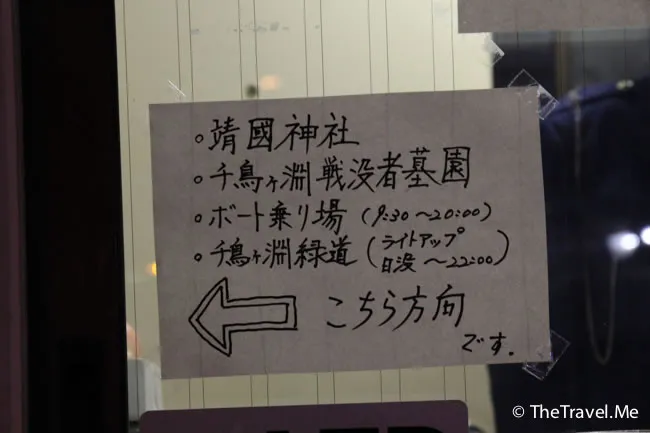 ○靖國神社
○千鳥ヶ淵戦没者墓園
○ボート乗り場(9:30～20:00)
○千鳥ヶ淵緑道(ライトアップ
日没～22:00)
こちら方向
です.
© TheTravel.Me